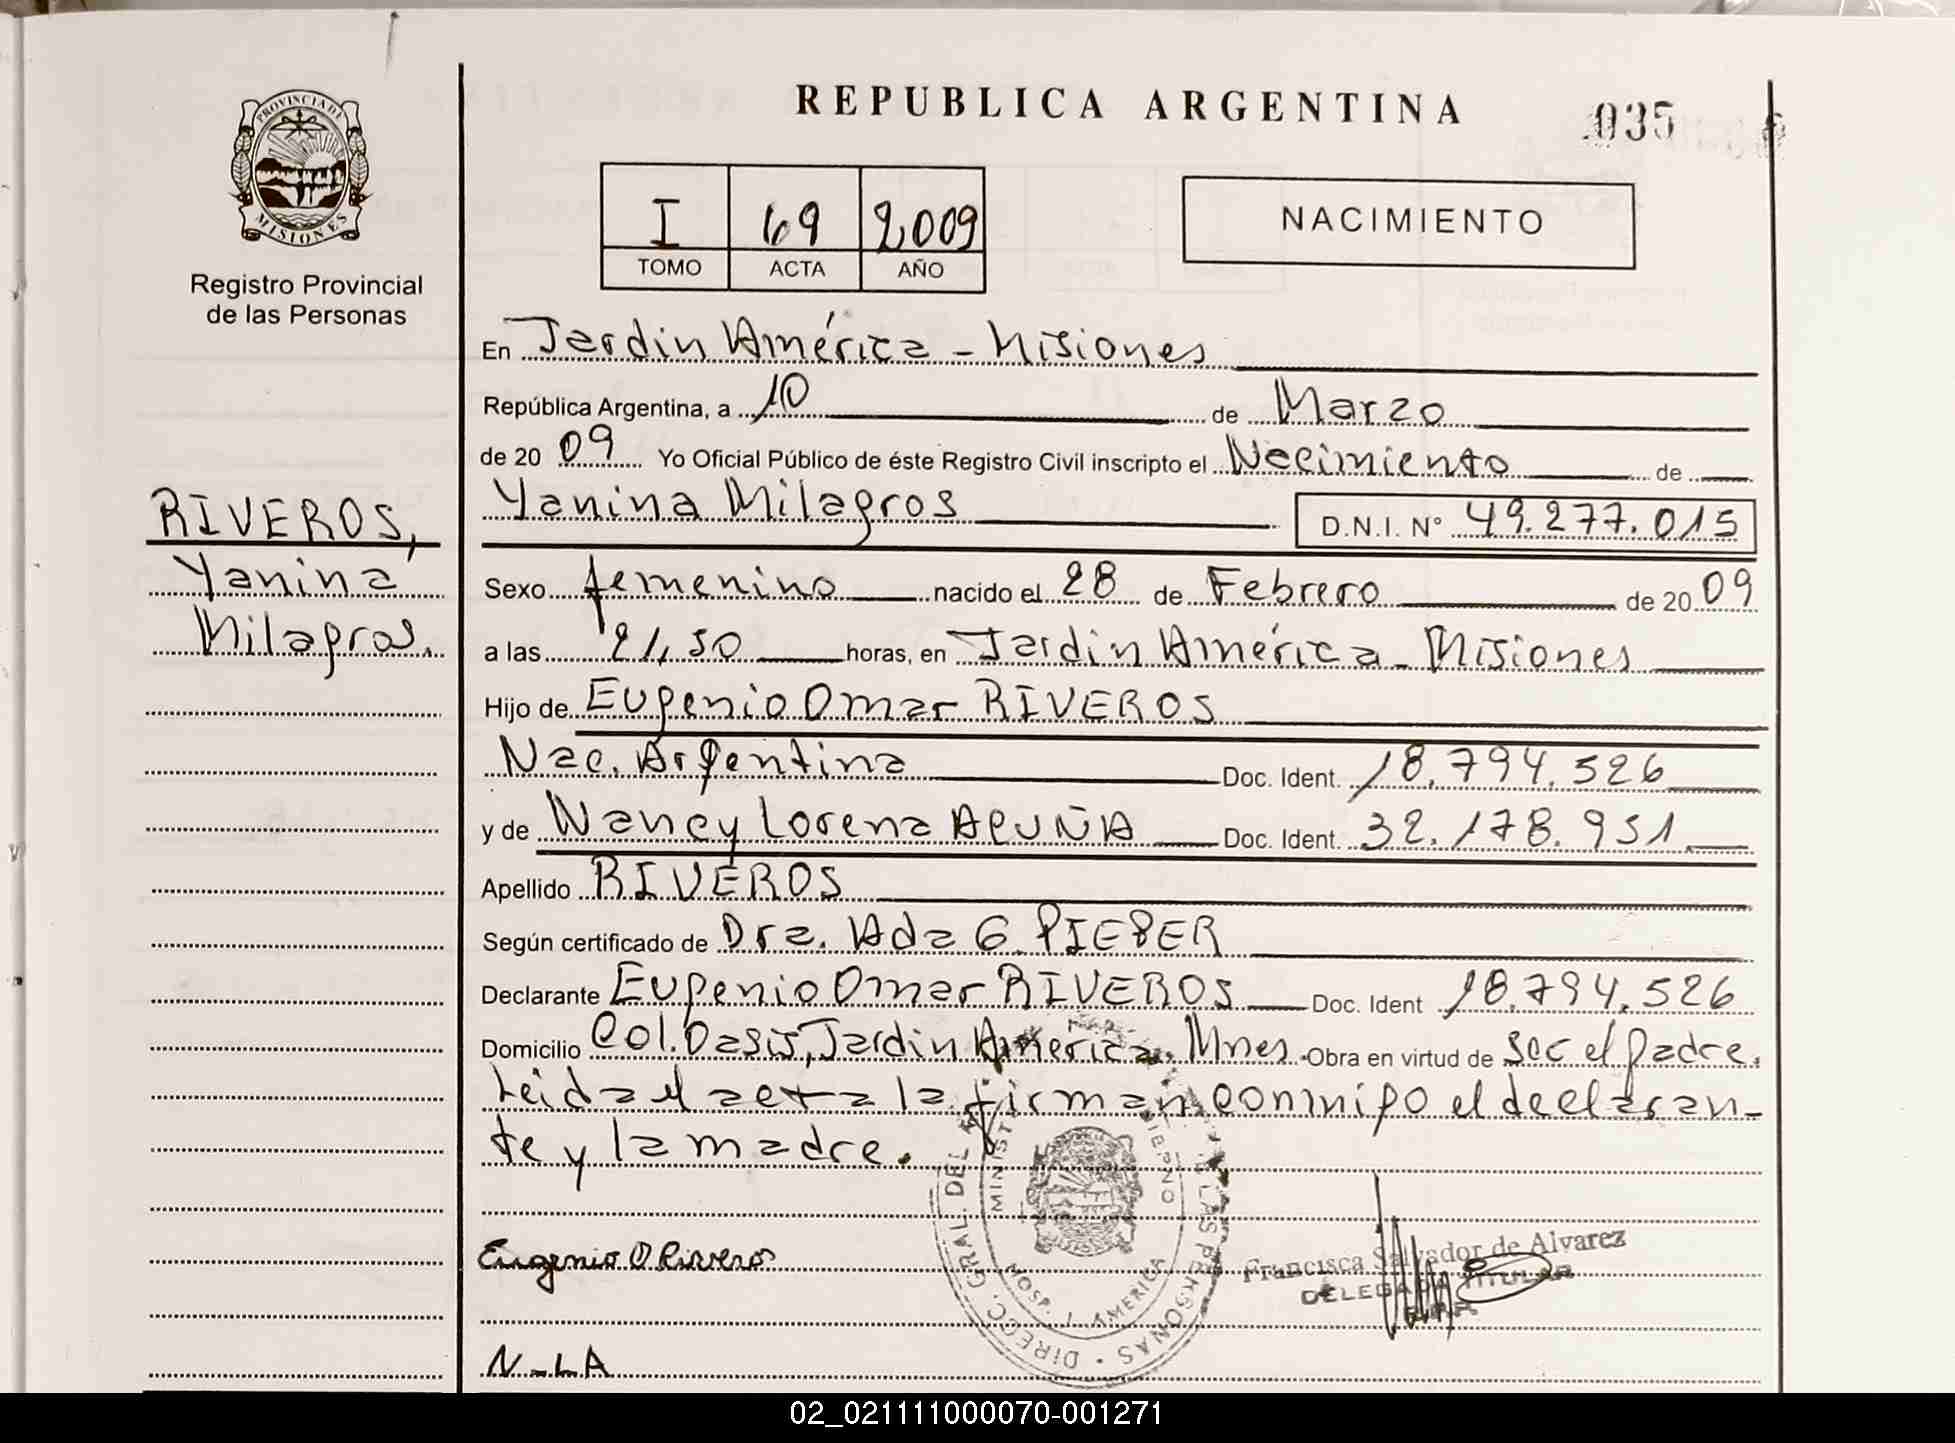 REPUBLICA ARGENTINA
035
PROVINCIA DE
MISIONES
Registro Provincial
de las Personas
I 69 2,009
TOMO ACTA AÑO
NACIMIENTO
En Jardin América - Misiones
República Argentina, a 10 de Marzo
de 20 09 Yo Oficial Público de éste Registro Civil inscripto el Nacimiento de
Yanina Milagros D.N.I. N° 49.277.015
RIVEROS,
Yanina
Milagros.
Sexo femenino nacido el 28 de Febrero de 20 09
a las 21,50 horas, en Jardin América - Misiones
Hijo de Eugenio Omar RIVEROS
Nac. Argentina Doc. Ident. 18.794.526
y de Nancy Lorena ACUÑA Doc. Ident. 32.178.951
Apellido RIVEROS
Según certificado de Dra. Ada G.
Declarante Eugenio Omar RIVEROS Doc. Ident 18.794.526
Domicilio Col. Oasis, Jardin América. Mnes. Obra en virtud de ser el padre.
Leida el acta la firman conmigo el declaran-
te y la madre.
Eugenio O Riveros
DIRECC. GRAL. DEL
LAS PERSONAS
HOSP. J. AMERICA
Francisca Salvador de Alvarez
DELEGADA TITULAR
N-LA
02_021111000070-001271